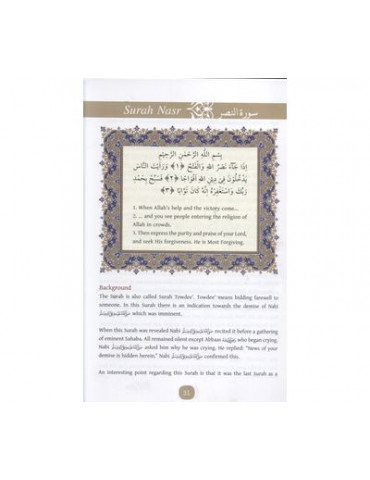 Surah Nasr سورة النصر
بِسْمِ اللّٰهِ الرَّحْمٰنِ الرَّحِيْمِ
اِذَا جَآءَ نَصْرُ اللّٰهِ وَالْفَتْحُ ﴿١﴾ وَرَاَيْتَ النَّاسَ
يَدْخُلُوْنَ فِىْ دِيْنِ اللّٰهِ اَفْوَاجًا ﴿٢﴾ فَسَبِّحْ بِحَمْدِ
رَبِّكَ وَاسْتَغْفِرْهُ اِنَّهٗ كَانَ تَوَّابًا ﴿٣﴾
1. When Allah's help and the victory come...
2. ... and you see people entering the religion of
Allah in crowds.
3. Then express the purity and praise of your Lord,
and seek His forgiveness. He is Most Forgiving.
Background
The Surah is also called Surah Towdee'. Towdee' means bidding farewell to
someone. In this Surah there is an indication towards the demise of Nabi
which was imminent.
When this Surah was revealed Nabi recited it before a gathering
of eminent Sahaba. All remained silent except Abbaas who began crying.
Nabi asked him why he was crying. He replied: "News of your
demise is hidden herein." Nabi confirmed this.
An interesting point regarding this Surah is that it was the last Surah as a
31